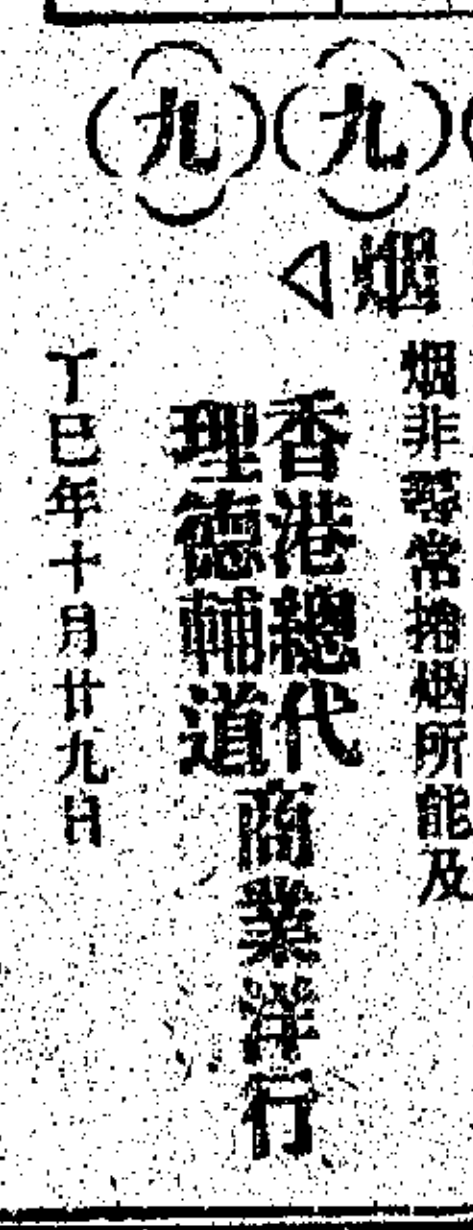 九九
烟
烟非尋常捲烟所能及
香港總代
理德輔道
商業洋行
丁巳年十月廿九日